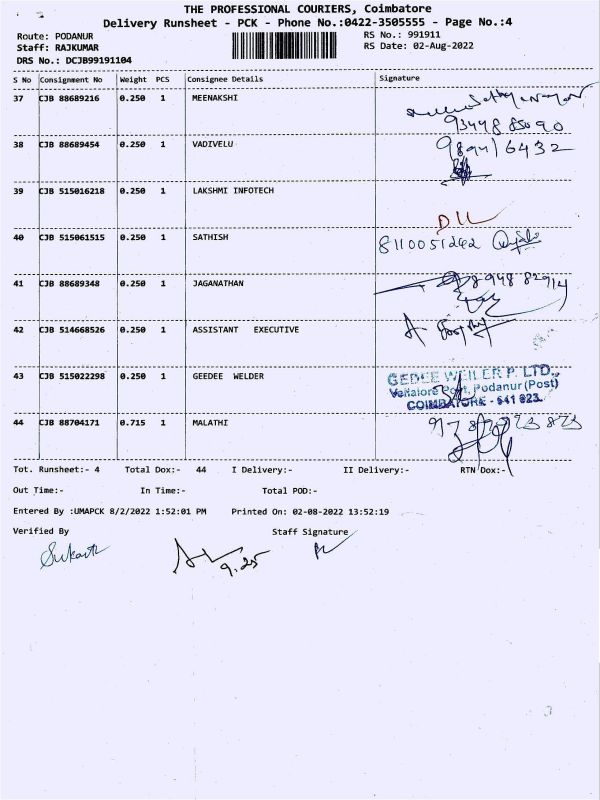 THE PROFESSIONAL COURIERS, Coimbatore
Delivery Runsheet - PCK - Phone No.:0422-3505555 - Page No.:4
Route: PODANUR RS No.: 991911
Staff: RAJKUMAR RS Date: 02-Aug-2022
DRS No.: DCJB99191104
S No Consignment No Weight PCS Consignee Details Signature
37 CJB 88689216 0.250 1 MEENAKSHI
93448 85090
38 CJB 88689454 0.250 1 VADIVELU 989416432
39 CJB 515016218 0.250 1 LAKSHMI INFOTECH
DLL
40 CJB 515061515 0.250 1 SATHISH 8110051242
41 CJB 88689348 0.250 1 JAGANATHAN
42 CJB 514668526 0.250 1 ASSISTANT EXECUTIVE
43 CJB 515022298 0.250 1 GEEDEE WELDER GEDEE WEILER P. LTD.,
Vellalore Post, Podanur (Post)
COIMBATORE - 641 023.
44 CJB 88704171 0.715 1 MALATHI
Tot. Runsheet:- 4 Total Dox:- 44 I Delivery:- II Delivery:- RTN Dox:-
Out Time:- In Time:- Total POD:-
Entered By :UMAPCK 8/2/2022 1:52:01 PM Printed On: 02-08-2022 13:52:19
Verified By Staff Signature
9.25